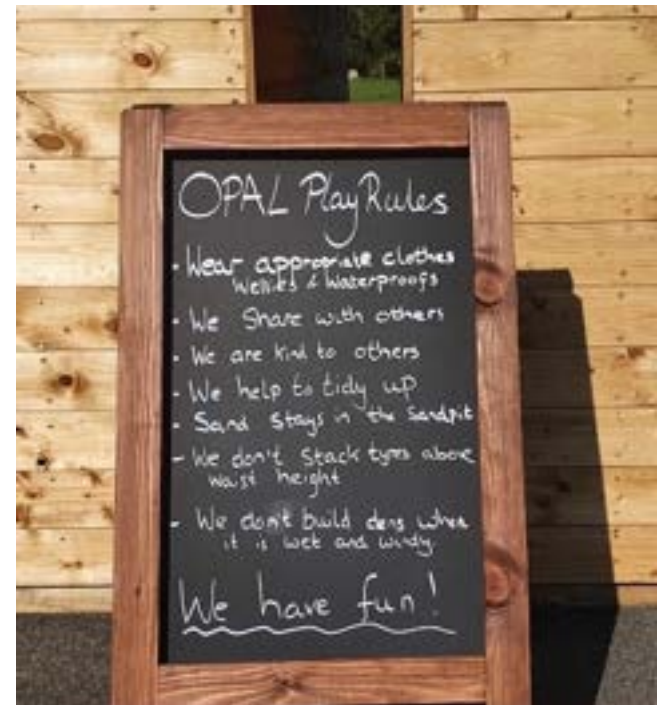 OPAL Play Rules
- Wear appropriate clothes
Wellies & Waterproofs
- We Share with others
- We are kind to others
- We help to tidy up
- Sand Stays in the Sandpit
- We don't Stack tyres above
waist height
- We don't build dens when
it is wet and windy.
We have fun!